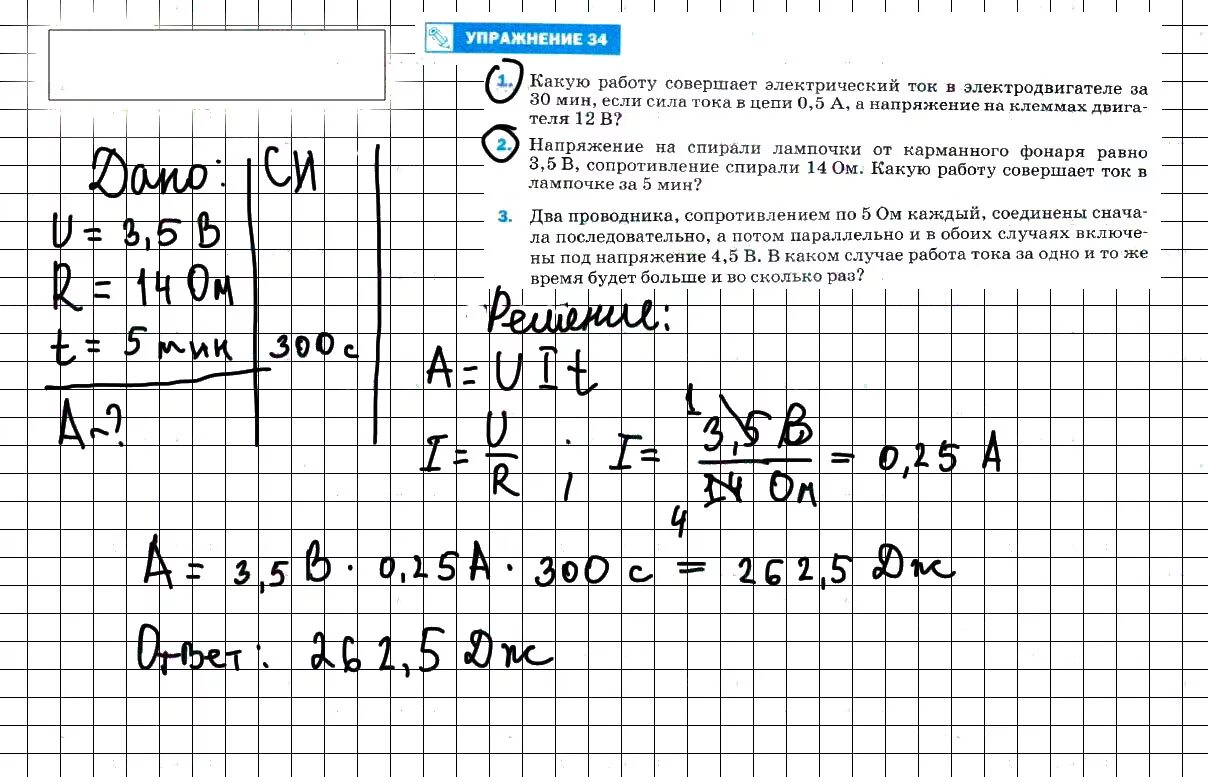 УПРАЖНЕНИЕ 34
1. Какую работу совершает электрический ток в электродвигателе за
30 мин, если сила тока в цепи 0,5 А, а напряжение на клеммах двига-
теля 12 В?
2. Напряжение на спирали лампочки от карманного фонаря равно
3,5 В, сопротивление спирали 14 Ом. Какую работу совершает ток в
лампочке за 5 мин?
3. Два проводника, сопротивлением по 5 Ом каждый, соединены снача-
ла последовательно, а потом параллельно и в обоих случаях включе-
ны под напряжение 4,5 В. В каком случае работа тока за одно и то же
время будет больше и во сколько раз?
Дано: СИ
U = 3,5 В
R = 14 Ом
t = 5 мин 300 с
A - ?
Решение:
A = U I t
I = U/R ; I = 3,5 В/14 Ом = 0,25 А
1
4
A = 3,5 В · 0,25 А · 300 с = 262,5 Дж
Ответ: 262,5 Дж